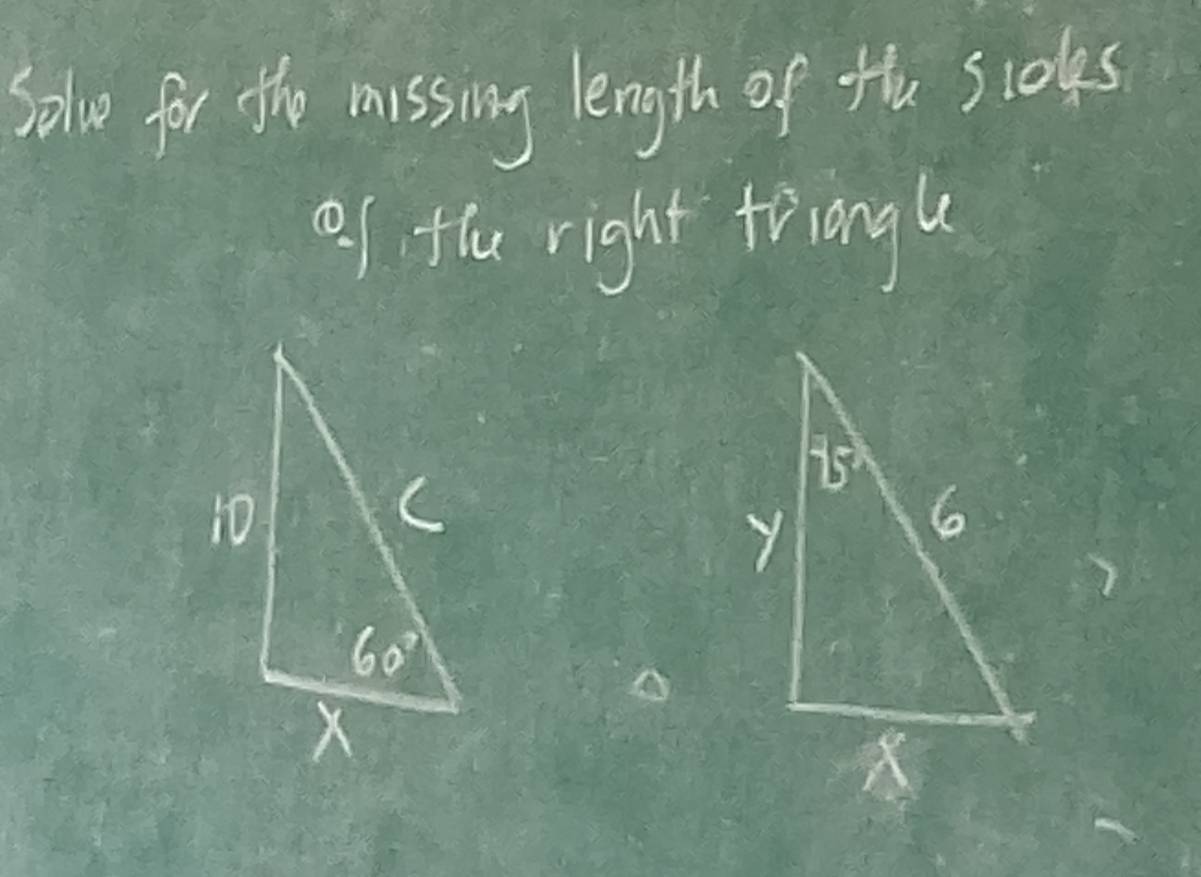 Solve for the missing length of the sides
of the right triangle
10
C
60°
X
45°
y
6
X